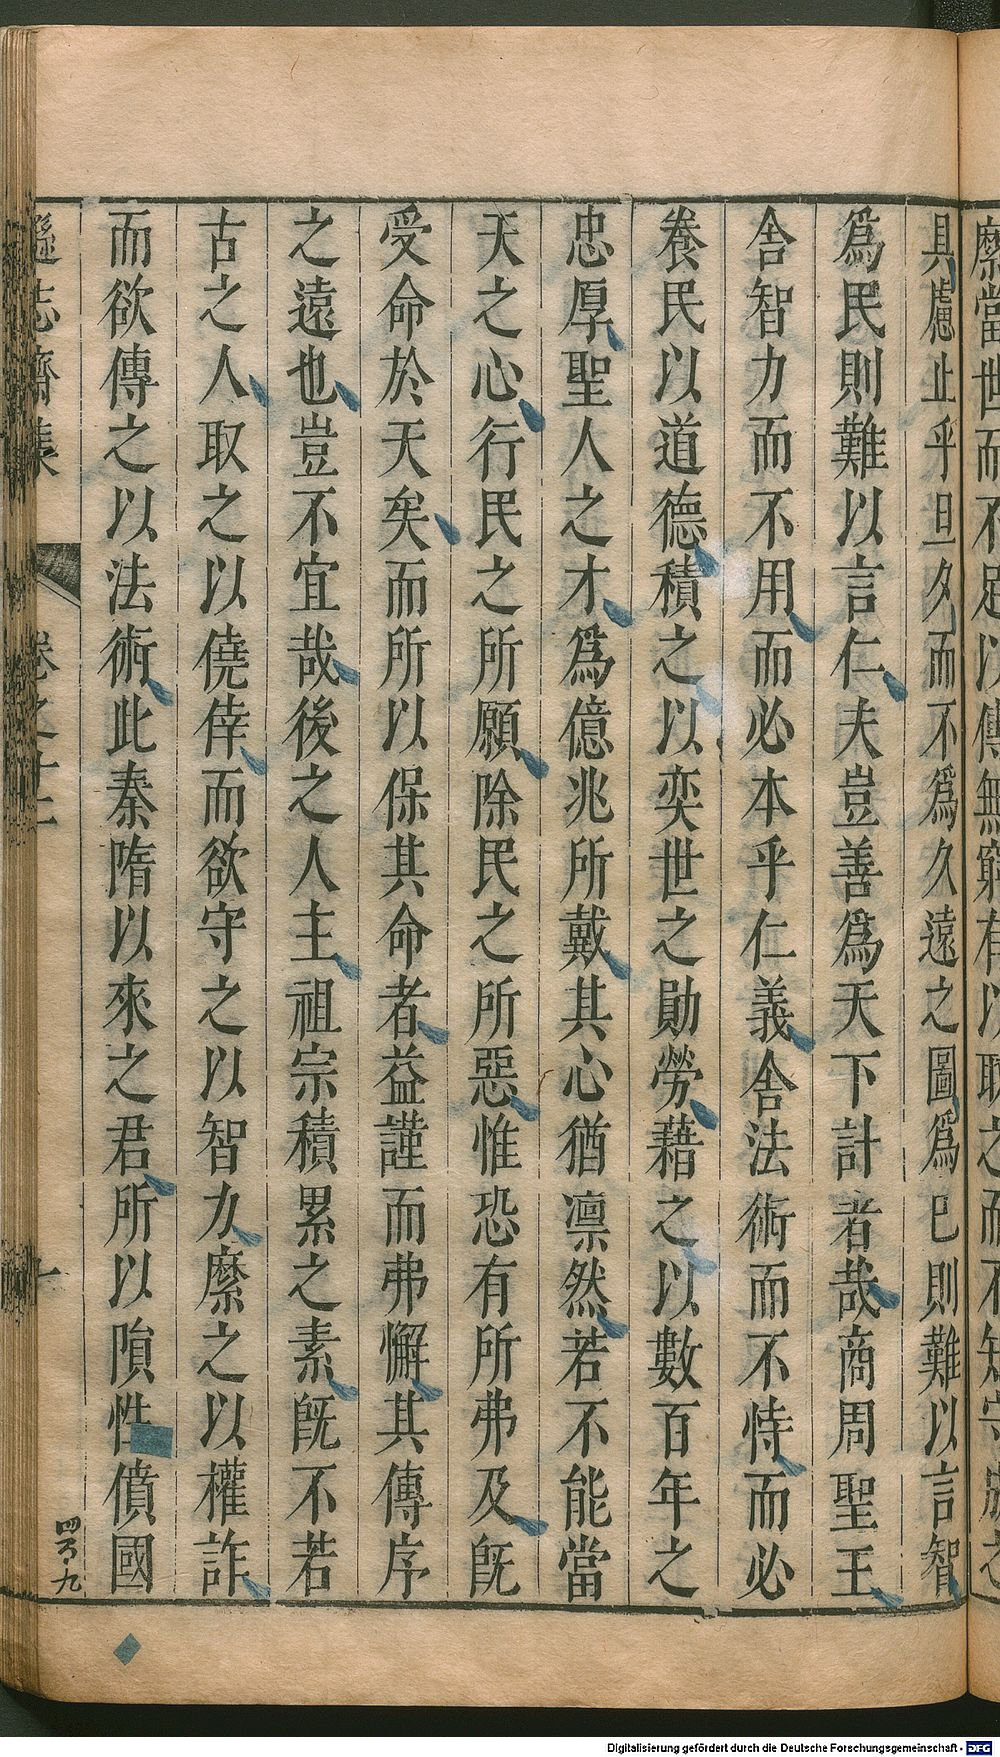 縻當世而不足以傳無窮有以取之而不知守成之
具慮止乎旦夕而不爲久遠之圖爲己則難以言智
爲民則難以言仁夫豈善爲天下計者哉商周聖王
舎智力而不用而必本乎仁義舎法術而不恃而必
養民以道德積之以奕世之勛勞藉之以數百年之
忠厚聖人之才爲億兆所戴其心猶凛然若不能當
天之心行民之所願除民之所惡惟恐有所弗及既
受命於天矣而所以保其命者益謹而弗懈其傳序
之遠也豈不宜哉後之人主祖宗積累之素既不若
古之人取之以僥倖而欲守之以智力縻之以權詐
而欲傳之以法術此秦隋以來之君所以隕性僨國
遜志齋集 卷之十二 一 四六九
Digitalisierung gefördert durch die Deutsche Forschungsgemeinschaft - DFG